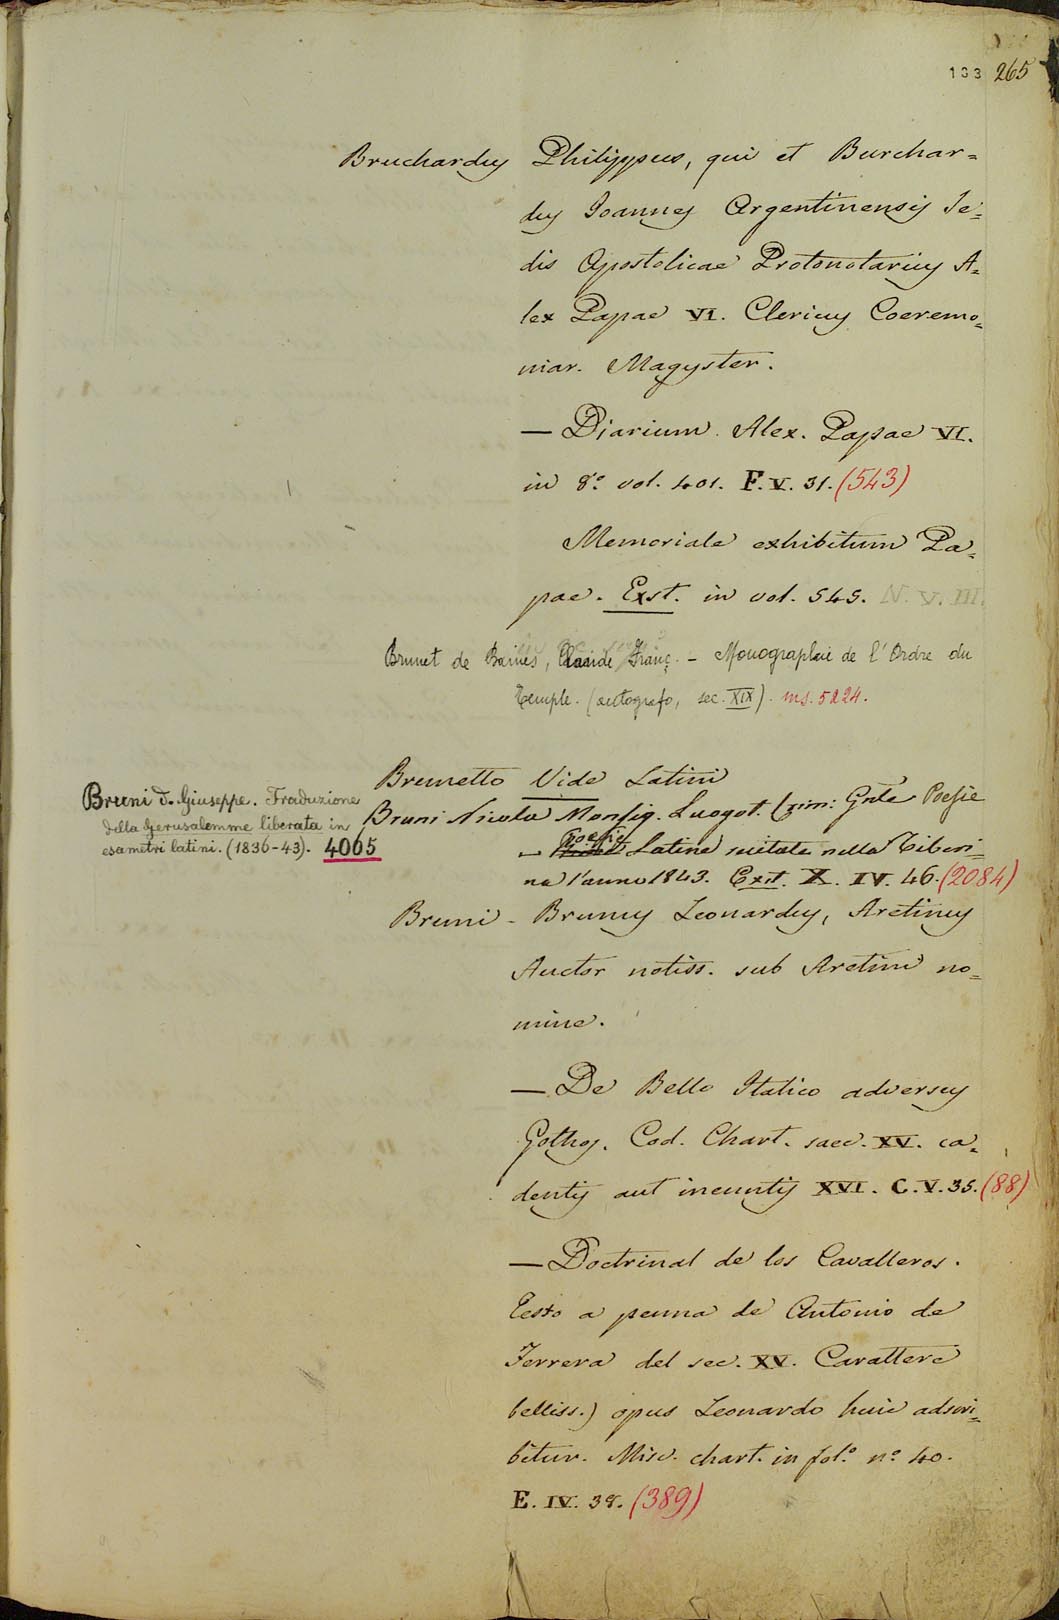 133 265
Bruchardus Philippus, qui et Burchar=
dus Joannes Argentinensis Se=
dis Apostolicae Protonotarius A=
lex Papae VI. Clericus Coeremo=
niar. Magyster.
— Diarium Alex. Papae VI.
in 8.º vol. 401. F. V. 31. (543)
Memoriale exhibitum Pa=
pae. Exst. in vol. 545. N. V. III.
Brunet de Baines, Claude Franç. – Monographie de l'Ordre du
Temple. (autografo, sec. XIX). ms. 5224.
Brunetto Vide Latini
Bruni D. Giuseppe. Traduzione
della Gerusalemme liberata in
esametri latini. (1836-43). 4065
Bruni Nicola Monsig. Luogot. Crim: Gnle Poesie
– Poesie Latine recitate nella Tiberi=
na l'anno 1843. Exst. X. IV. 46. (2084)
Bruni - Brunus Leonardus, Aretinus
Auctor notiss. sub Aretini no=
mine.
— De Bello Italico adversus
Gothos. Cod. Chart. saec. XV. ca=
dentis aut ineuntis XVI. C. V. 35. (88)
— Doctrinal de los Cavalleros.
Testo a penna de Antonio de
Ferrera del sec. XV. Carattere
belliss.) opus Leonardo huic adscri=
bitur. Misc. chart. in fol.º n.º 40.
E. IV. 38. (389)